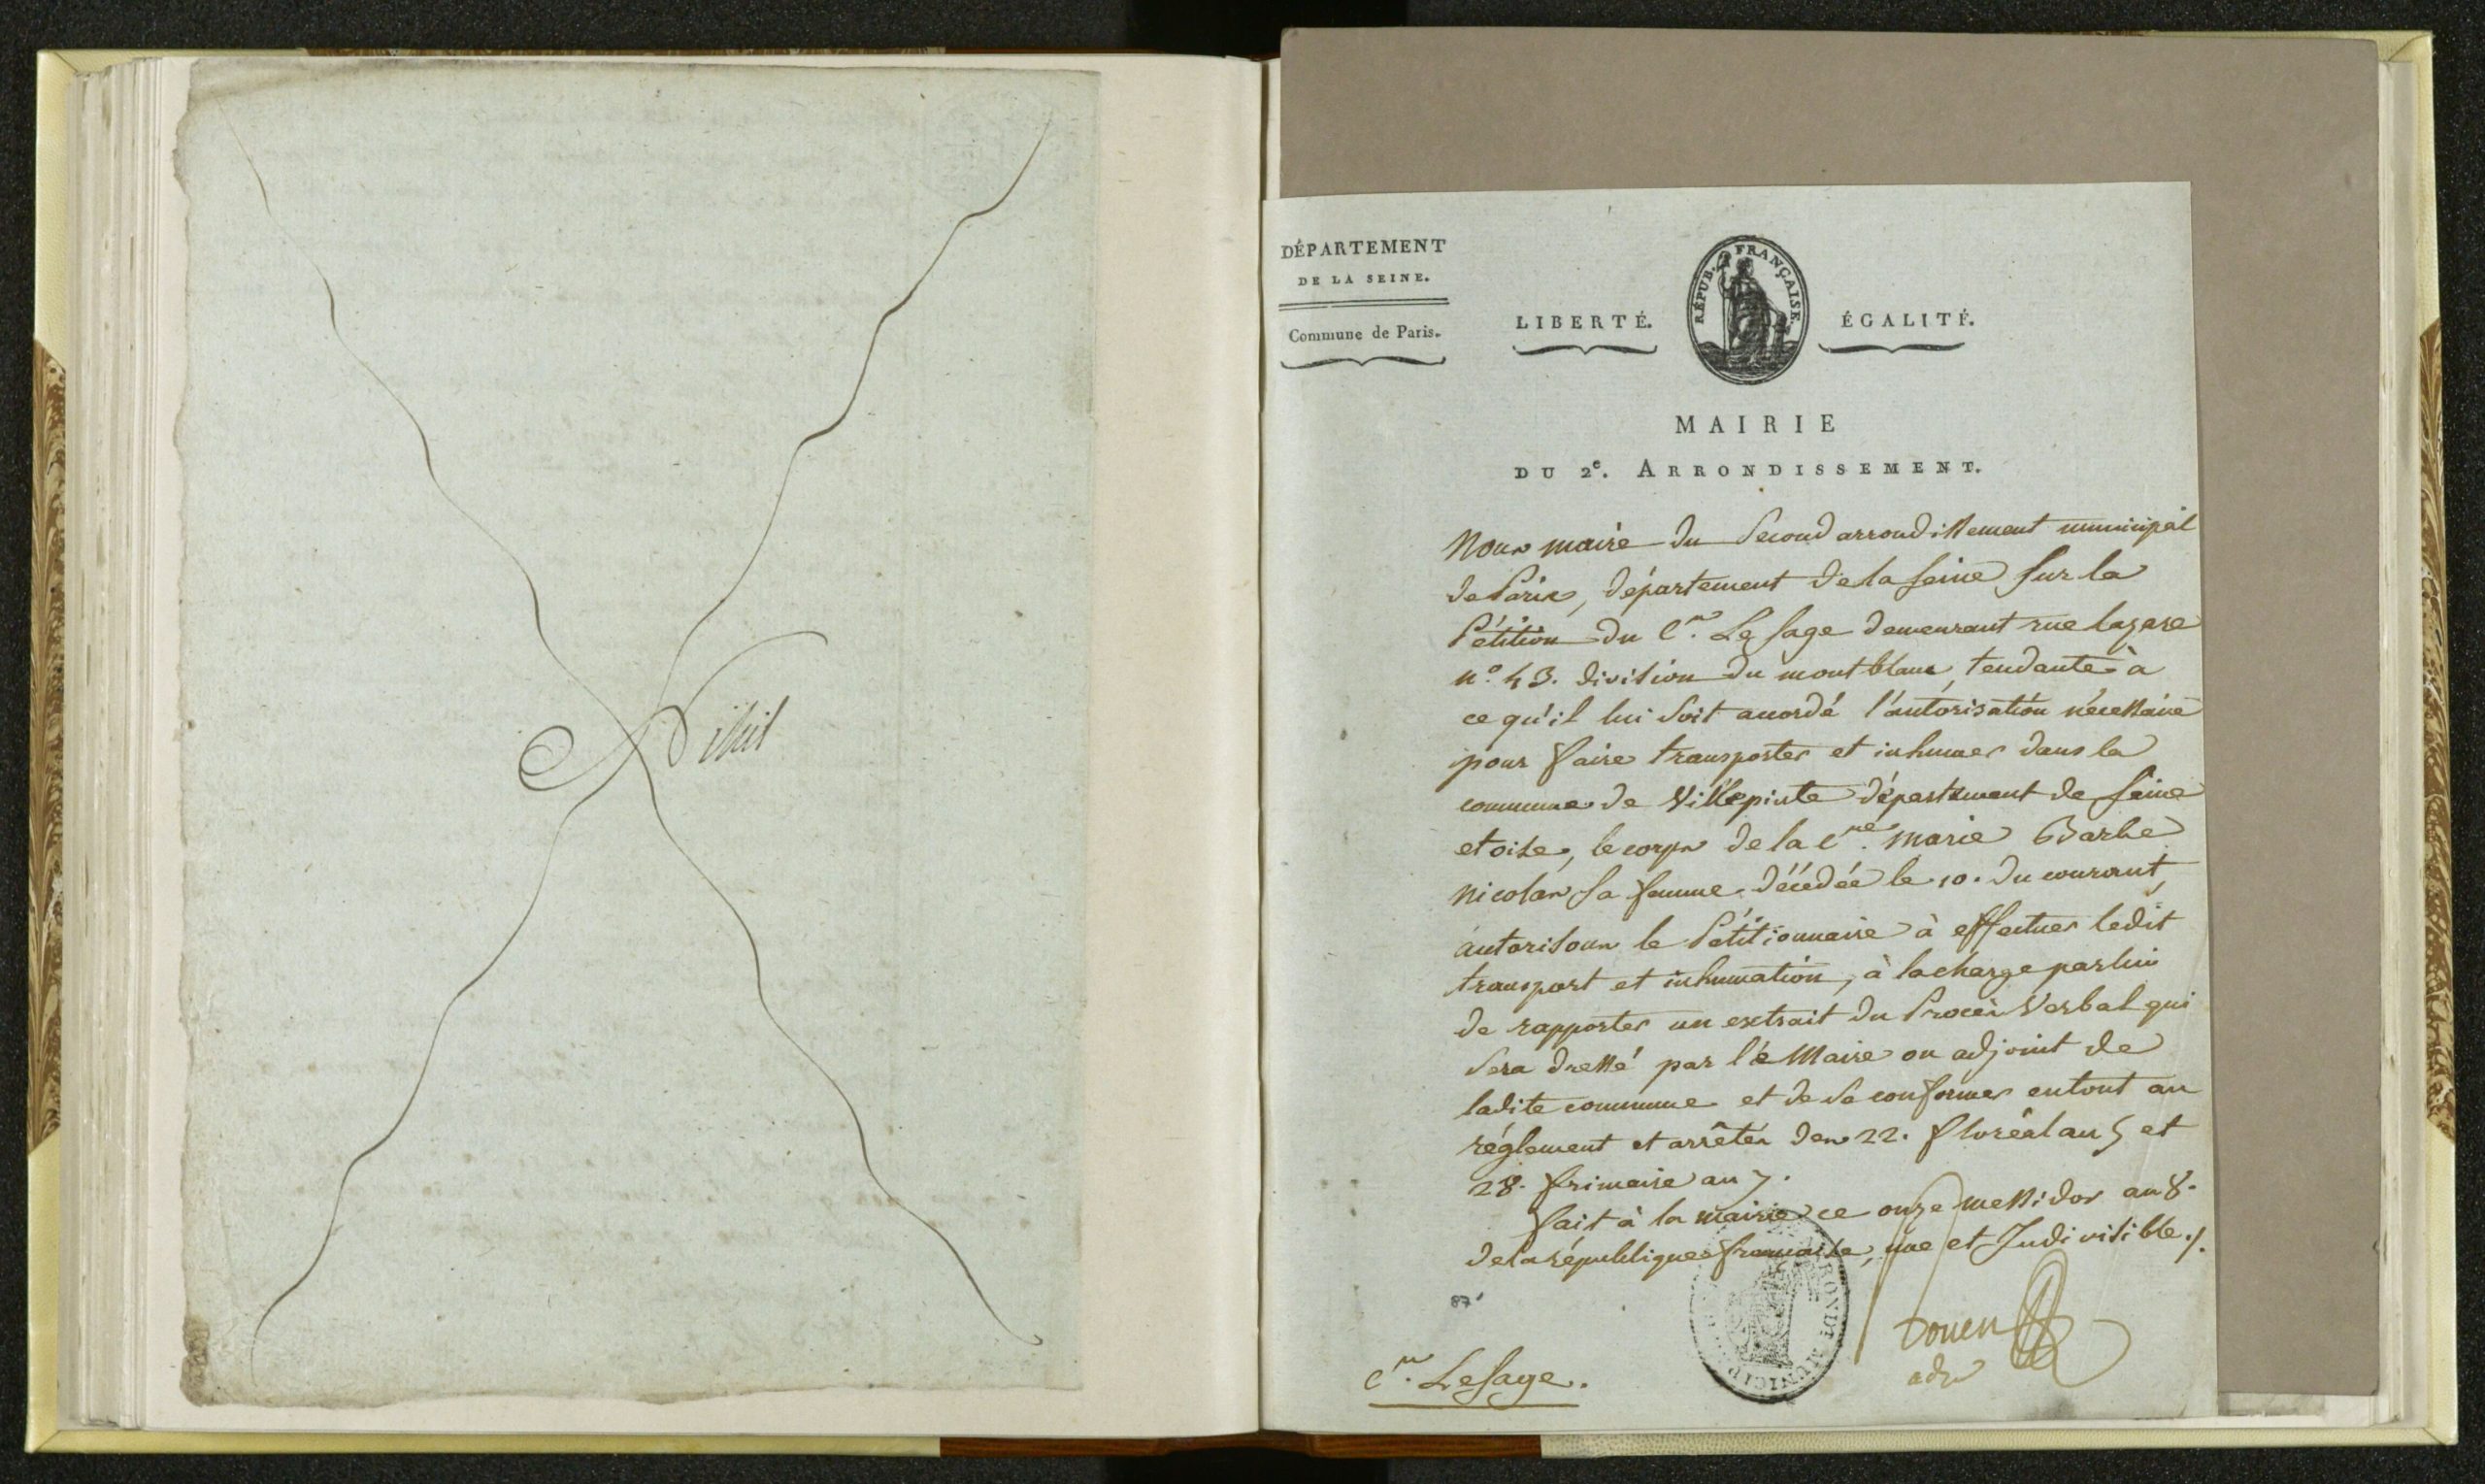 Nihil
DÉPARTEMENT
DE LA SEINE.
Commune de Paris.
LIBERTÉ.
RÉPUB. FRANÇAISE.
ÉGALITÉ.
MAIRIE
DU 2e. ARRONDISSEMENT.
Nous maire du Second arrondissement municipal
de Paris, département de la Seine sur la
Pétition du Cen. Le Sage demeurant rue lazare
n.° 43. division du montblanc, tendante à
ce qu'il lui soit accordé l'autorisation nécessaire
pour faire transporter et inhumer dans la
commune de Villepinte département de Seine
et oise, le corps de la Cne. Marie Barbe
Nicolas sa femme décédée le 10. du courant,
autorisons le Pétitionnaire à effectuer ledit
transport et inhumation, à la charge par lui
de rapporter un extrait du Procès Verbal qui
sera dressé par le Maire ou adjoint de
ladite commune et de se conformer en tout au
réglement et arrêtés des 22. floréal an 5 et
28. frimaire an 7.
fait à la mairie ce onze messidor an 8.
de la république française, une et Indivisible ./.
87
Cen. LeSage.
RONDT MUNICIP
adj